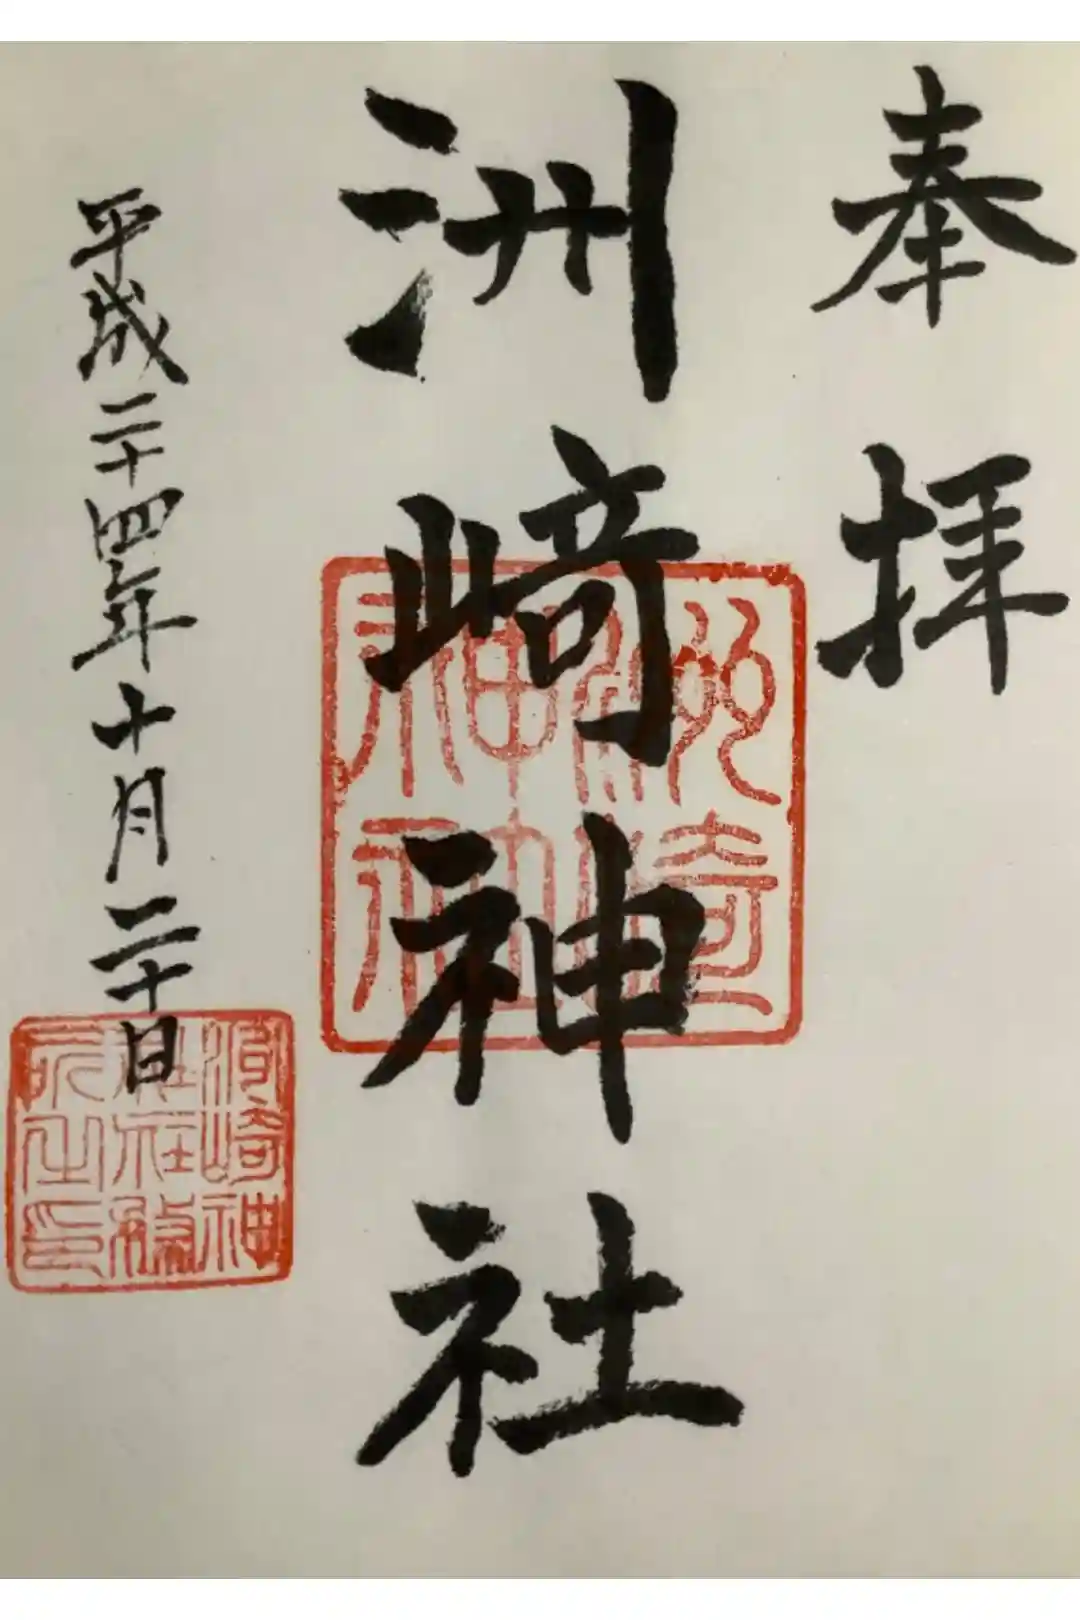 奉拝
洲﨑神社
平成二十四年十月二十日
洲崎
神社
洲崎神
社社務
所之印